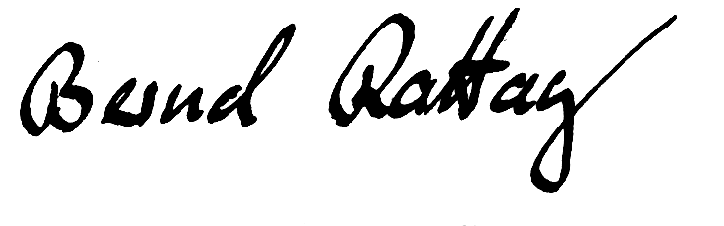 Bernd Rattay